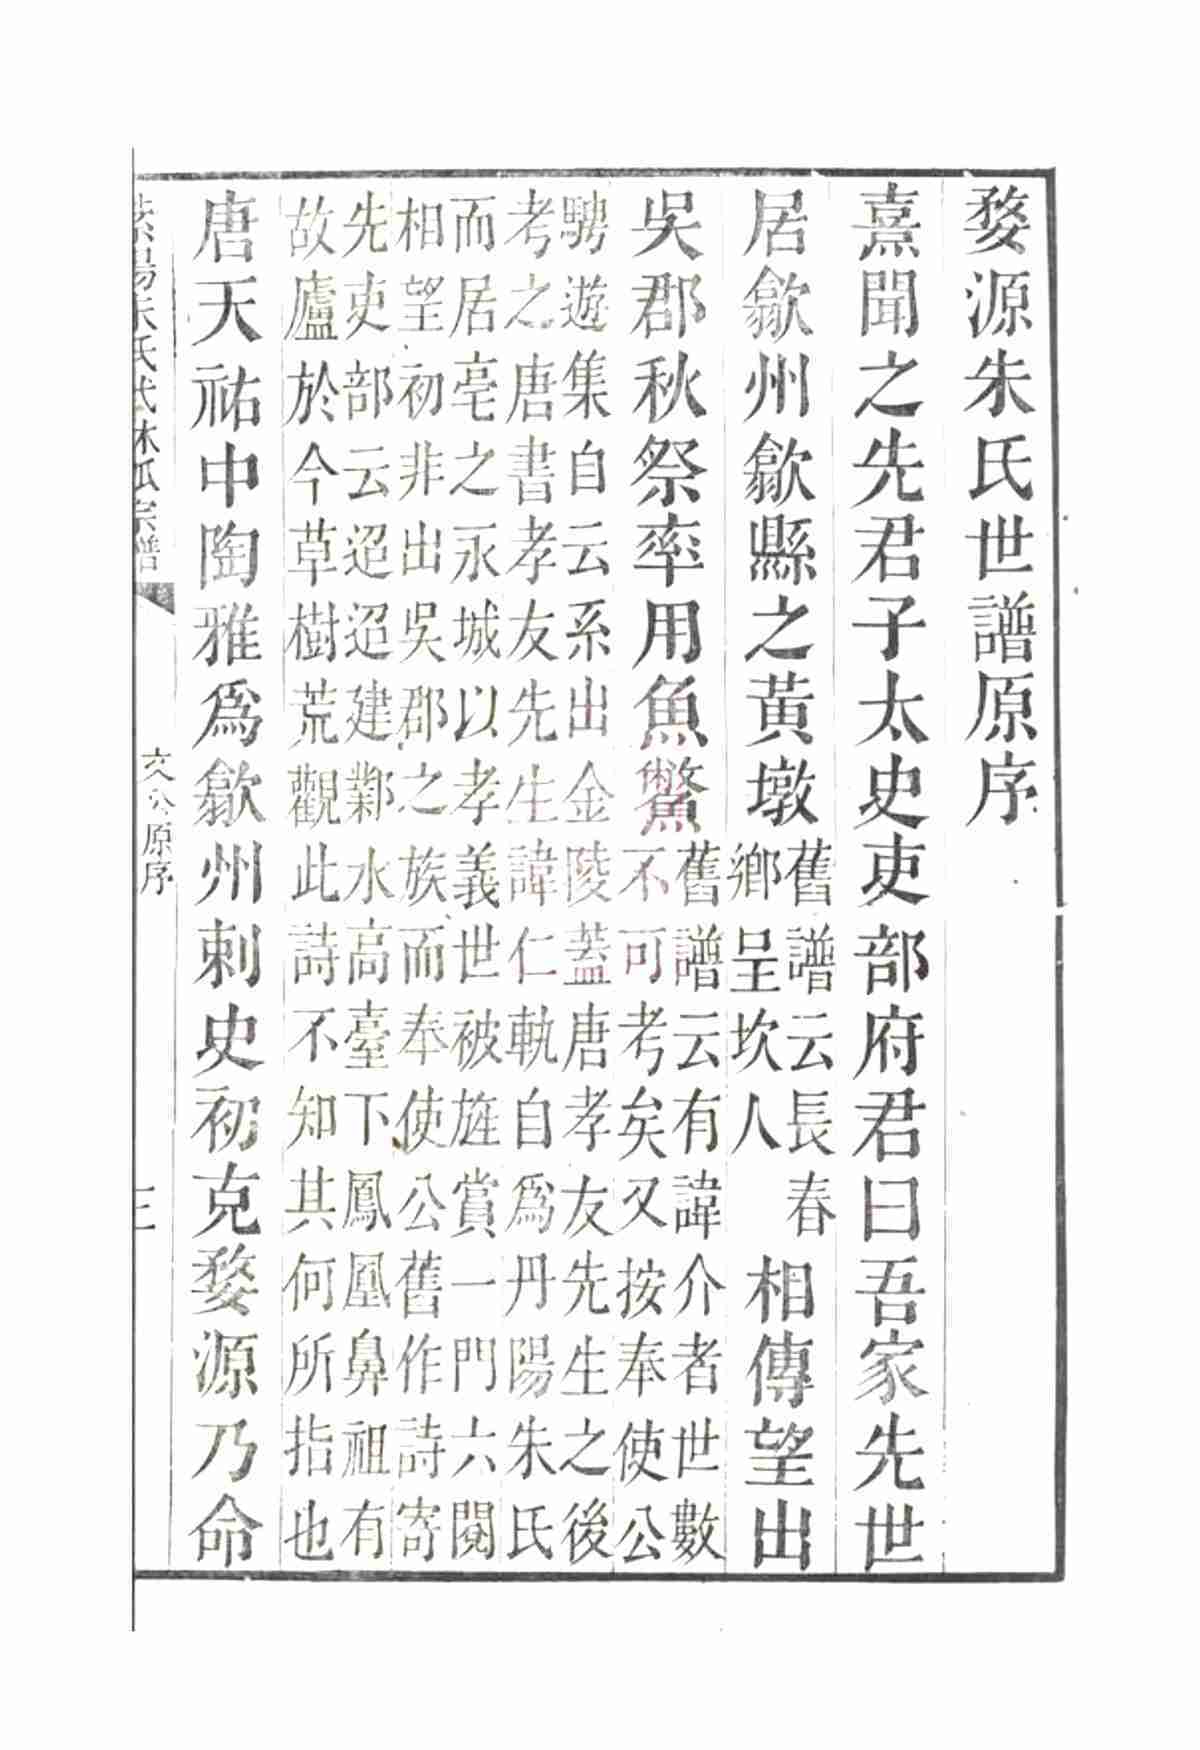 婺源朱氏世譜原序
熹聞之先君子太史吏部府君曰吾家先世
居歙州歙縣之黃墩舊譜云長春鄉呈坎人相傳望出
吳郡秋祭率用魚鱉舊譜云有諱介者世數不可考矣又按奉使公
騁遊集自云系出金陵蓋唐孝友先生之後
考之唐書孝友先生諱仁軌自爲丹陽朱氏
而居亳之永城以孝義世被旌賞一門六闕
相望初非出吳郡之族而奉使公舊作詩寄
先吏部云迢迢建鄴水高臺下鳳凰鼻祖有
故廬於今草樹荒觀此詩不知其何所指也
唐天祐中陶雅爲歙州刺史初克婺源乃命
紫陽朱氏武林派宗譜
文公原序
三